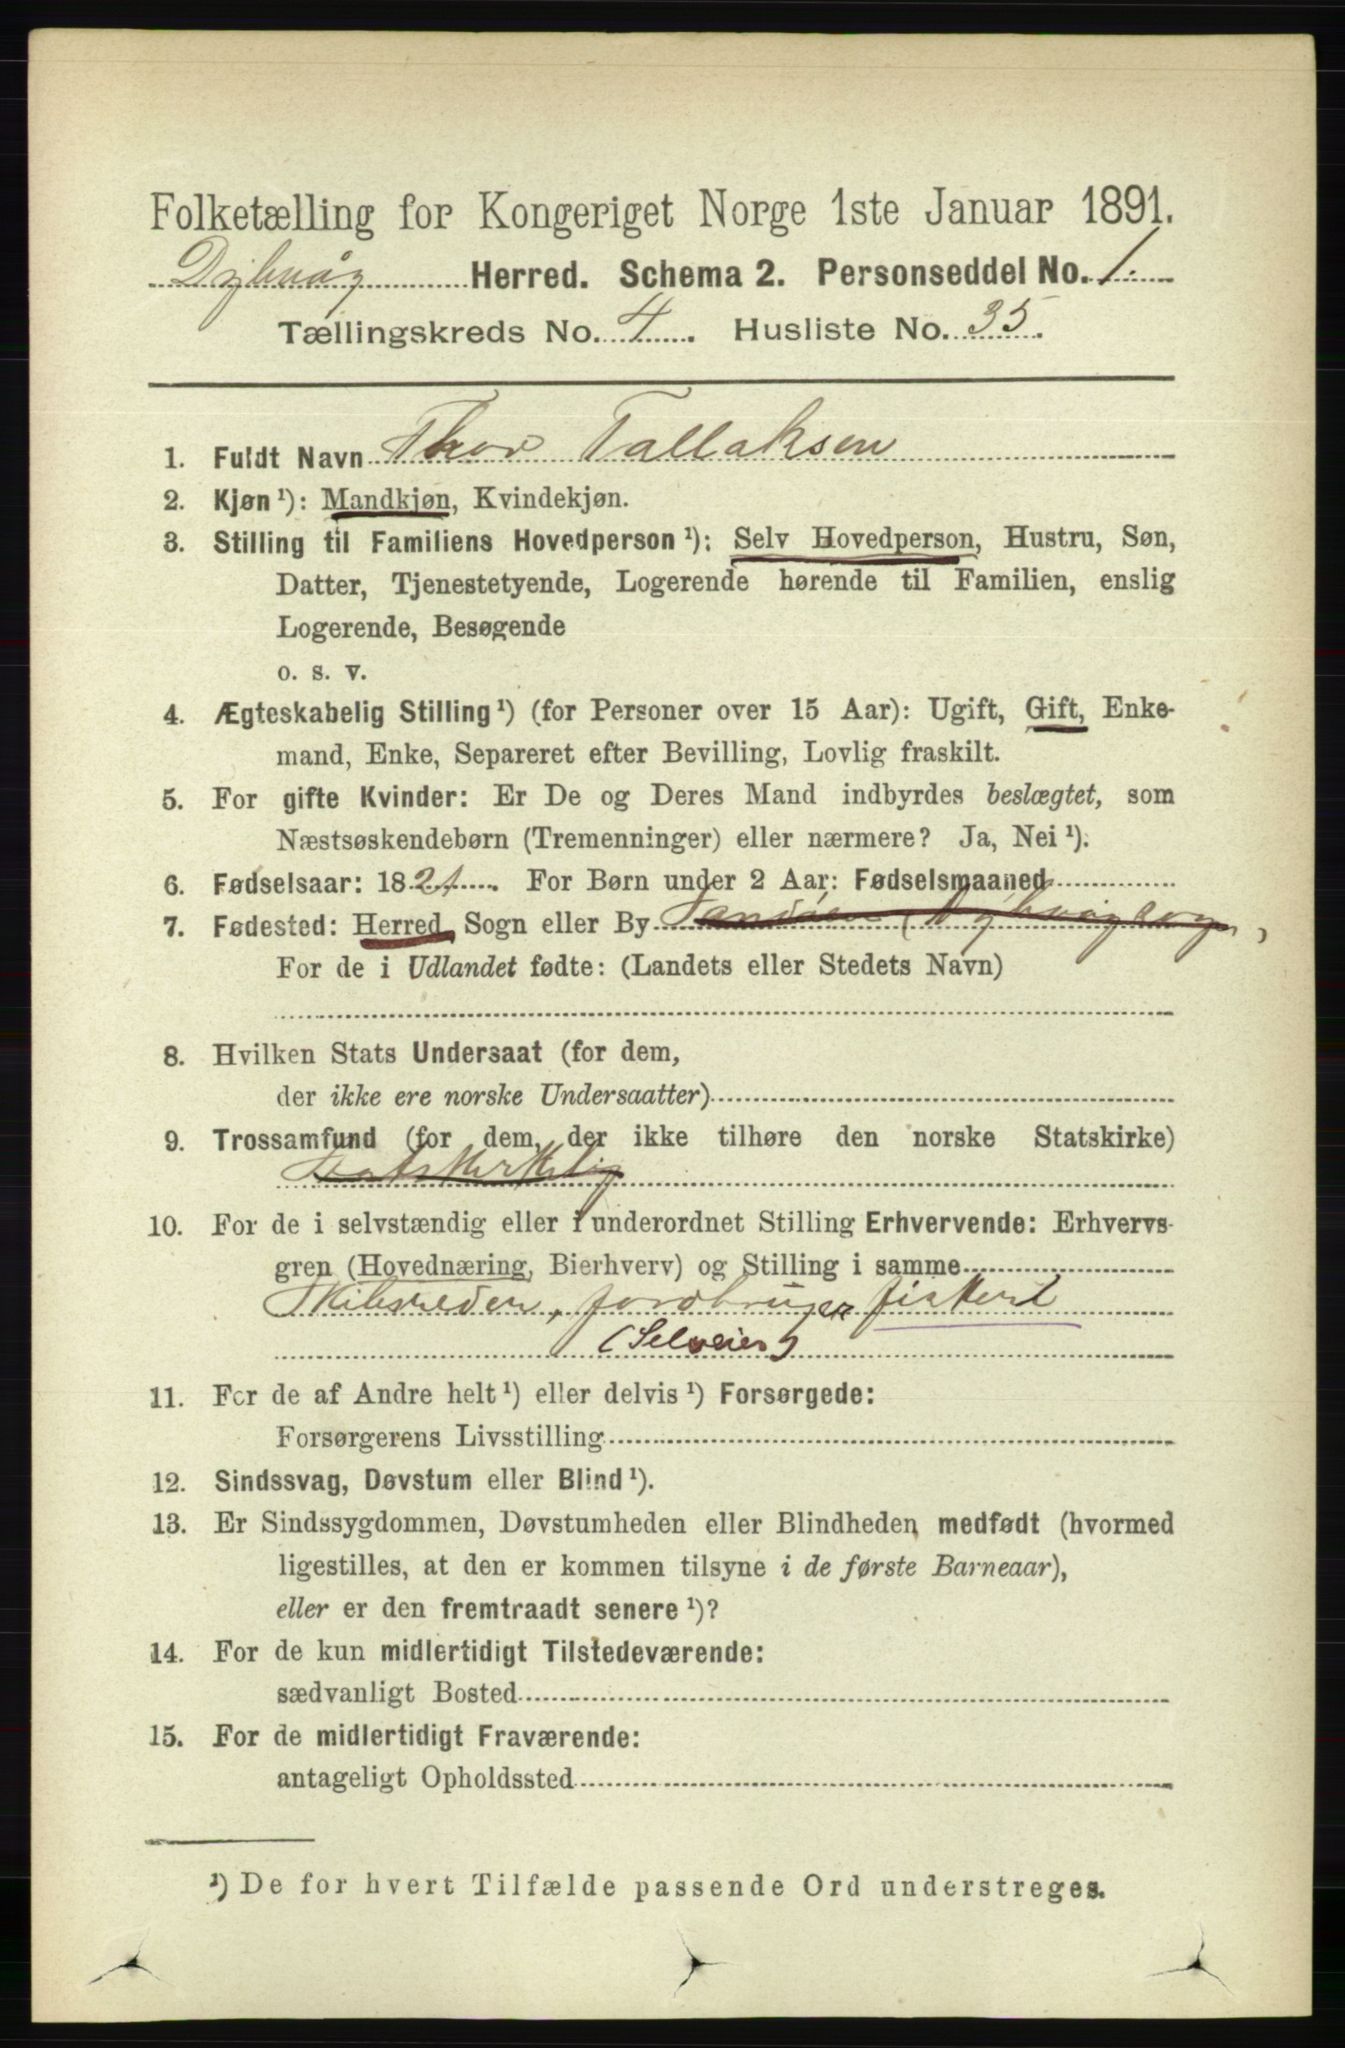 Folketælling for Kongeriget Norge 1ste Januar 1891.
Dybvåg Herred. Schema 2. Personseddel No. 1.
Tællingskreds No. 4. Husliste No. 35.
1. Fuldt Navn Thor Tallaksen
2. Kjøn¹): Mandkjøn, Kvindekjøn.
3. Stilling til Familiens Hovedperson¹): Selv Hovedperson, Hustru, Søn,
Datter, Tjenestetyende, Logerende hørende til Familien, enslig
Logerende, Besøgende
o. s. v.
4. Ægteskabelig Stilling¹) (for Personer over 15 Aar): Ugift, Gift, Enke-
mand, Enke, Separeret efter Bevilling, Lovlig fraskilt.
5. For gifte Kvinder: Er De og Deres Mand indbyrdes beslægtet, som
Næstsøskendebørn (Tremenninger) eller nærmere? Ja, Nei¹).
6. Fødselsaar: 1821. For Børn under 2 Aar: Fødselsmaaned
7. Fødested: Herred, Sogn eller By Sandøen (Dybvåg sogn,
For de i Udlandet fødte: (Landets eller Stedets Navn)
8. Hvilken Stats Undersaat (for dem,
der ikke ere norske Undersaatter)
9. Trossamfund (for dem, der ikke tilhøre den norske Statskirke)
Statskirkelig
10. For de i selvstændig eller i underordnet Stilling Erhvervende: Erhvervs-
gren (Hovednæring, Bierhverv) og Stilling i samme
Skibsreder, jordbruger fiskeri
(Selveier)
11. For de af Andre helt¹) eller delvis¹) Forsørgede:
Forsørgerens Livsstilling
12. Sindssvag, Døvstum eller Blind¹).
13. Er Sindssygdommen, Døvstumheden eller Blindheden medfødt (hvormed
ligestilles, at den er kommen tilsyne i de første Barneaar),
eller er den fremtraadt senere¹)?
14. For de kun midlertidigt Tilstedeværende:
sædvanligt Bosted
15. For de midlertidigt Fraværende:
antageligt Opholdssted
¹) De for hvert Tilfælde passende Ord understreges.